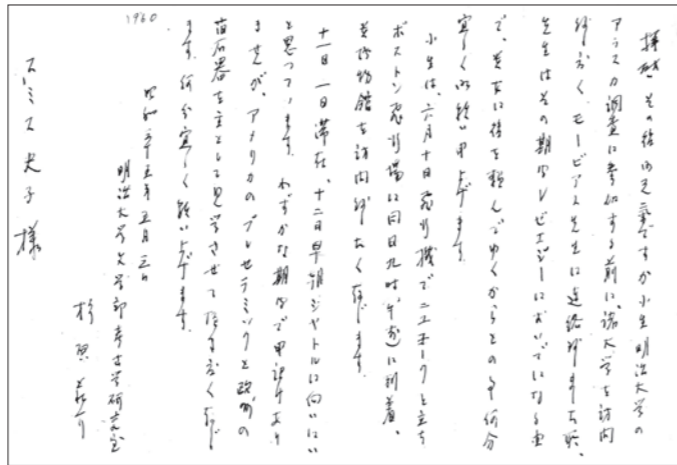 拝啓、その後御元気ですか小生明治大学の
アラスカ調査に参加する前に、諸大学を訪問
致すべく、モービアス先生に連絡致しました所、
先生はその期間レゼエジーにおいでになる由
で、貴女に後を頼んでゆくからとの事何分
宜しく御願い申上げます。
小生は、六月十日飛行機でニューヨークを立ち
ボストン飛行場に同日九時(午前)に到着、
貴博物館を訪問致したく存じます。
十一日一日滞在、十二日早朝シヤトルに向いたい
と思っています。わずかな期間で申訳けあり
ませんが、アメリカのプレセラミックと欧州の
旧石器を主として見学させて頂きたく存じ
ます。何分宜しく願い上げます。
1960
昭和三十五年五月三日
明治大学文学部考古学研究室
杉原荘介
スミス史子様